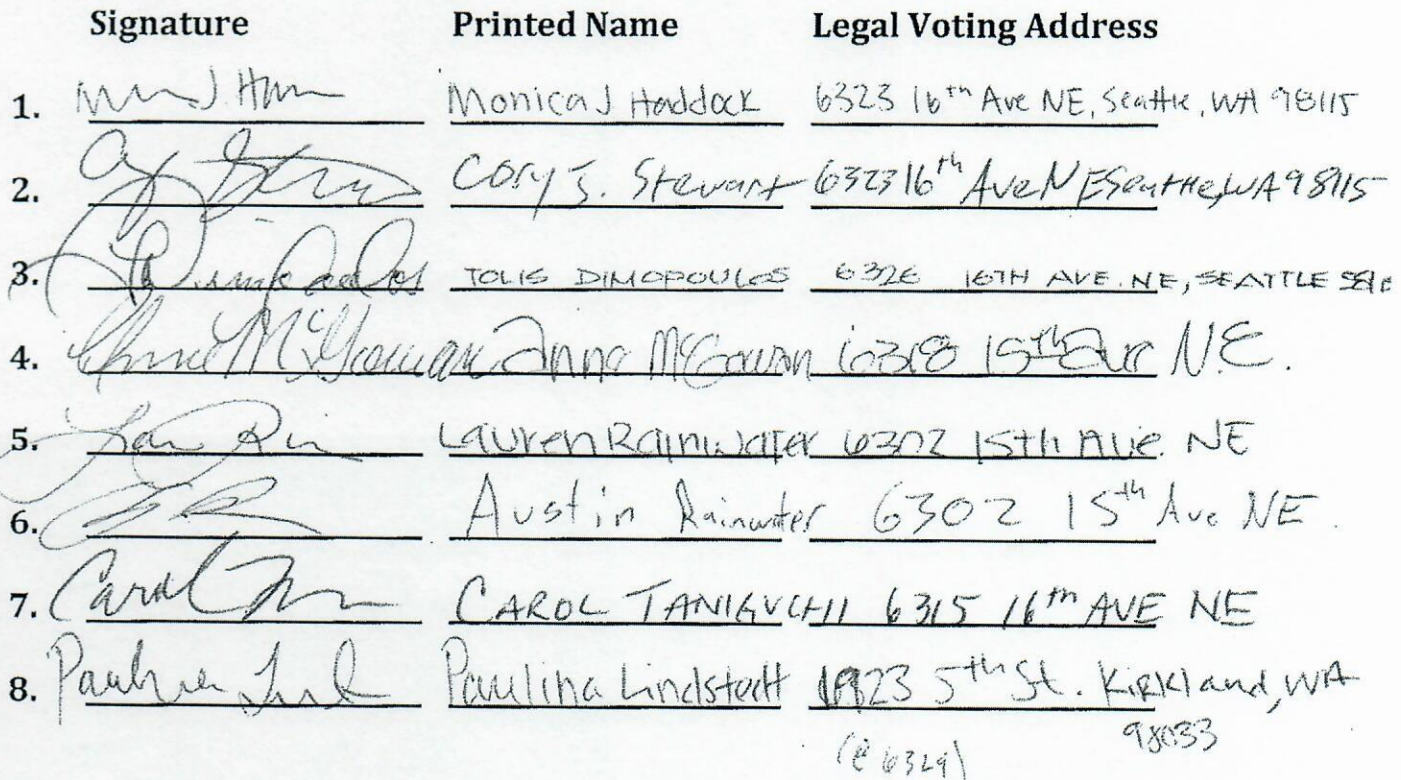 Signature Printed Name Legal Voting Address
1. Monica J Haddock 6323 16th Ave NE, Seattle, WA 98115
2. Cory J. Stewart 6323 16th Ave NE Seattle, WA 98115
3. TOLIS DIMOPOULOS 6326 16TH AVE. NE, SEATTLE
4. Anne McGowan Anne McGowan 6318 15th Ave N.E.
5. Lauren Rainwater 6302 15th Ave. NE
6. Austin Rainwater 6302 15th Ave NE.
7. Carol CAROL TANIGUCHI 6315 16th AVE NE
8. Paulina Paulina Lindstedt 1923 5th St. Kirkland, WA
(@ 6329) 98033